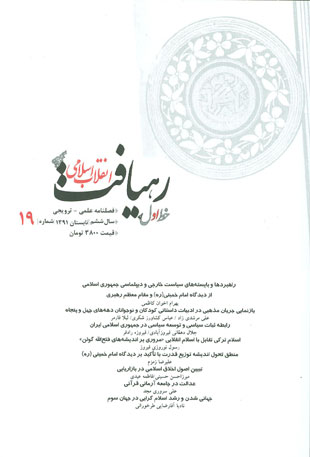 رهیافت
انقلاب اسلامی
خط اول
فصلنامه علمی - ترویجی
سال ششم / تابستان ۱۳۹۱ / شماره: ۱۹
قیمت ۳۸۰۰ تومان
راهبردها و بایسته‌های سیاست خارجی و دیپلماسی جمهوری اسلامی
از دیدگاه امام خمینی(ره) و مقام معظم رهبری
بهرام اخوان کاظمی
بازنمایی جریان مذهبی در ادبیات داستانی کودکان و نوجوانان دهه‌های چهل و پنجاه
علی مرشدی زاد / عباس کشاورز شکری /
رابطه ثبات سیاسی و توسعه سیاسی در جمهوری اسلامی ایران
جلال دهقانی فیروزآبادی / فیروزه رادفر
اسلام ترکی تقابل با اسلام انقلابی «مروری بر اندیشه‌های فتح‌الله گولن»
رسول نوروزی فیروز
منطق تحول اندیشه توزیع قدرت با تأکید بر دیدگاه امام خمینی (ره)
علیرضا زمزم
تبیین اصول اخلاق اسلامی در بازاریابی
میرزاحسن حسینی / فاطمه عیدی
عدالت در جامعه آرمانی قرآنی
علی سروری مجد
جهانی شدن و رشد اسلام گرایی در جهان سوم
نادیا آقارضایی طرخورانی